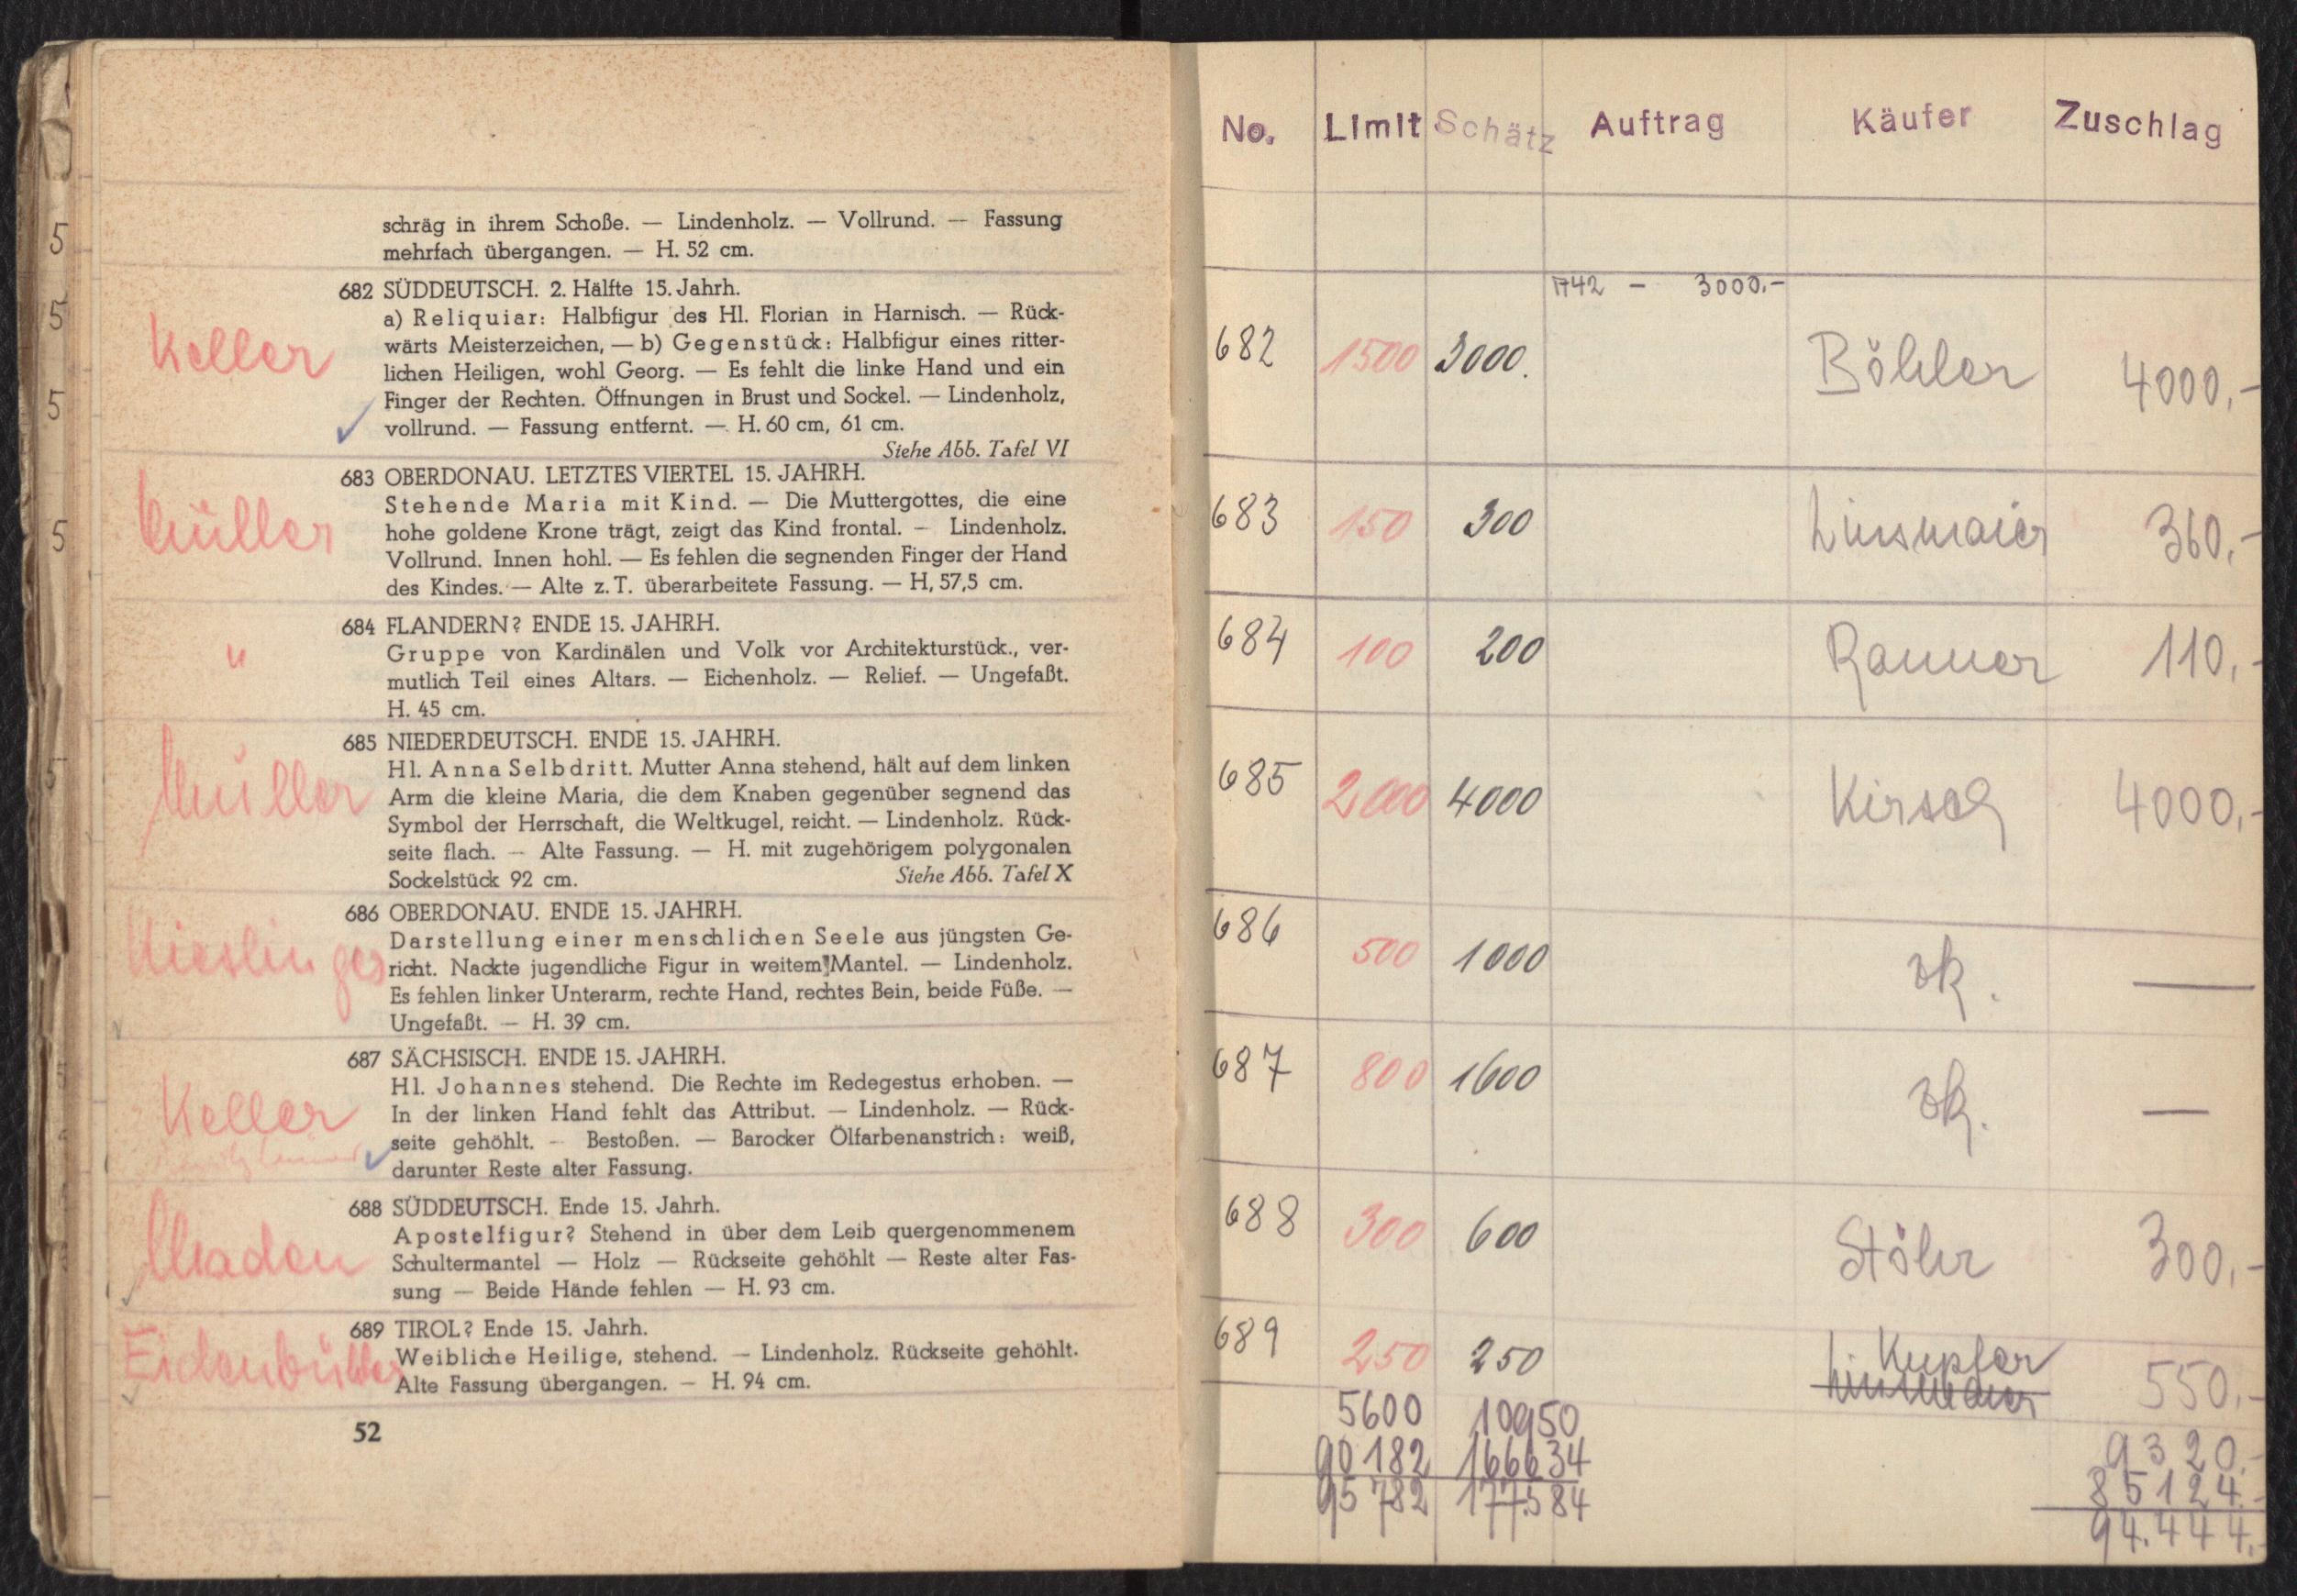 schräg in ihrem Schoße. — Lindenholz. — Vollrund. — Fassung
mehrfach übergangen. — H. 52 cm.
Keller
682 SÜDDEUTSCH. 2. Hälfte 15. Jahrh.
a) Reliquiar: Halbfigur des Hl. Florian in Harnisch. — Rück-
wärts Meisterzeichen, — b) Gegenstück: Halbfigur eines ritter-
lichen Heiligen, wohl Georg. — Es fehlt die linke Hand und ein
Finger der Rechten. Öffnungen in Brust und Sockel. — Lindenholz,
vollrund. — Fassung entfernt. — H. 60 cm, 61 cm.
Siehe Abb. Tafel VI
Müller
683 OBERDONAU. LETZTES VIERTEL 15. JAHRH.
Stehende Maria mit Kind. — Die Muttergottes, die eine
hohe goldene Krone trägt, zeigt das Kind frontal. — Lindenholz.
Vollrund. Innen hohl. — Es fehlen die segnenden Finger der Hand
des Kindes. — Alte z. T. überarbeitete Fassung. — H, 57,5 cm.
"
684 FLANDERN? ENDE 15. JAHRH.
Gruppe von Kardinälen und Volk vor Architekturstück., ver-
mutlich Teil eines Altars. — Eichenholz. — Relief. — Ungefaßt.
H. 45 cm.
Müller
685 NIEDERDEUTSCH. ENDE 15. JAHRH.
Hl. Anna Selbdritt. Mutter Anna stehend, hält auf dem linken
Arm die kleine Maria, die dem Knaben gegenüber segnend das
Symbol der Herrschaft, die Weltkugel, reicht. — Lindenholz. Rück-
seite flach. — Alte Fassung. — H. mit zugehörigem polygonalen
Sockelstück 92 cm. Siehe Abb. Tafel X
Kieslinger
686 OBERDONAU. ENDE 15. JAHRH.
Darstellung einer menschlichen Seele aus jüngsten Ge-
richt. Nackte jugendliche Figur in weitem Mantel. — Lindenholz.
Es fehlen linker Unterarm, rechte Hand, rechtes Bein, beide Füße. —
Ungefaßt. — H. 39 cm.
Keller
687 SÄCHSISCH. ENDE 15. JAHRH.
Hl. Johannes stehend. Die Rechte im Redegestus erhoben. —
In der linken Hand fehlt das Attribut. — Lindenholz. — Rück-
seite gehöhlt. — Bestoßen. — Barocker Ölfarbenanstrich: weiß,
darunter Reste alter Fassung.
688 SÜDDEUTSCH. Ende 15. Jahrh.
Apostelfigur? Stehend in über dem Leib quergenommenem
Schultermantel — Holz — Rückseite gehöhlt — Reste alter Fas-
sung — Beide Hände fehlen — H. 93 cm.
689 TIROL? Ende 15. Jahrh.
Weibliche Heilige, stehend. — Lindenholz. Rückseite gehöhlt.
Alte Fassung übergangen. — H. 94 cm.
52
5
5
5
5
5
No. Limit Schätz Auftrag Käufer Zuschlag
1742 - 3000.-
682 1500 3000. Böhler 4000,-
683 150 300 Linsmaier 360,-
684 100 200 Ranner 110,-
685 2000 4000 Kirsch 4000,-
686 500 1000 zk. —
687 800 1600 zk. —
688 300 600 Stöhr 300,-
689 250 250 Kupfer 550.-
Linsmaier
5600 10950 9320.-
90182 166634 85124.-
95782 177.584 94.444.-